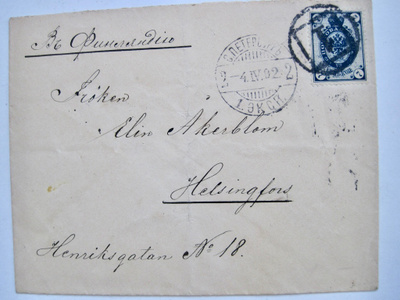 Въ Финляндію
С.ПЕТЕРБУРГ
2 -4.IV.02- 2
Fröken
Elin Åkerblom
Helsingfors
Henriksgatan No 18.